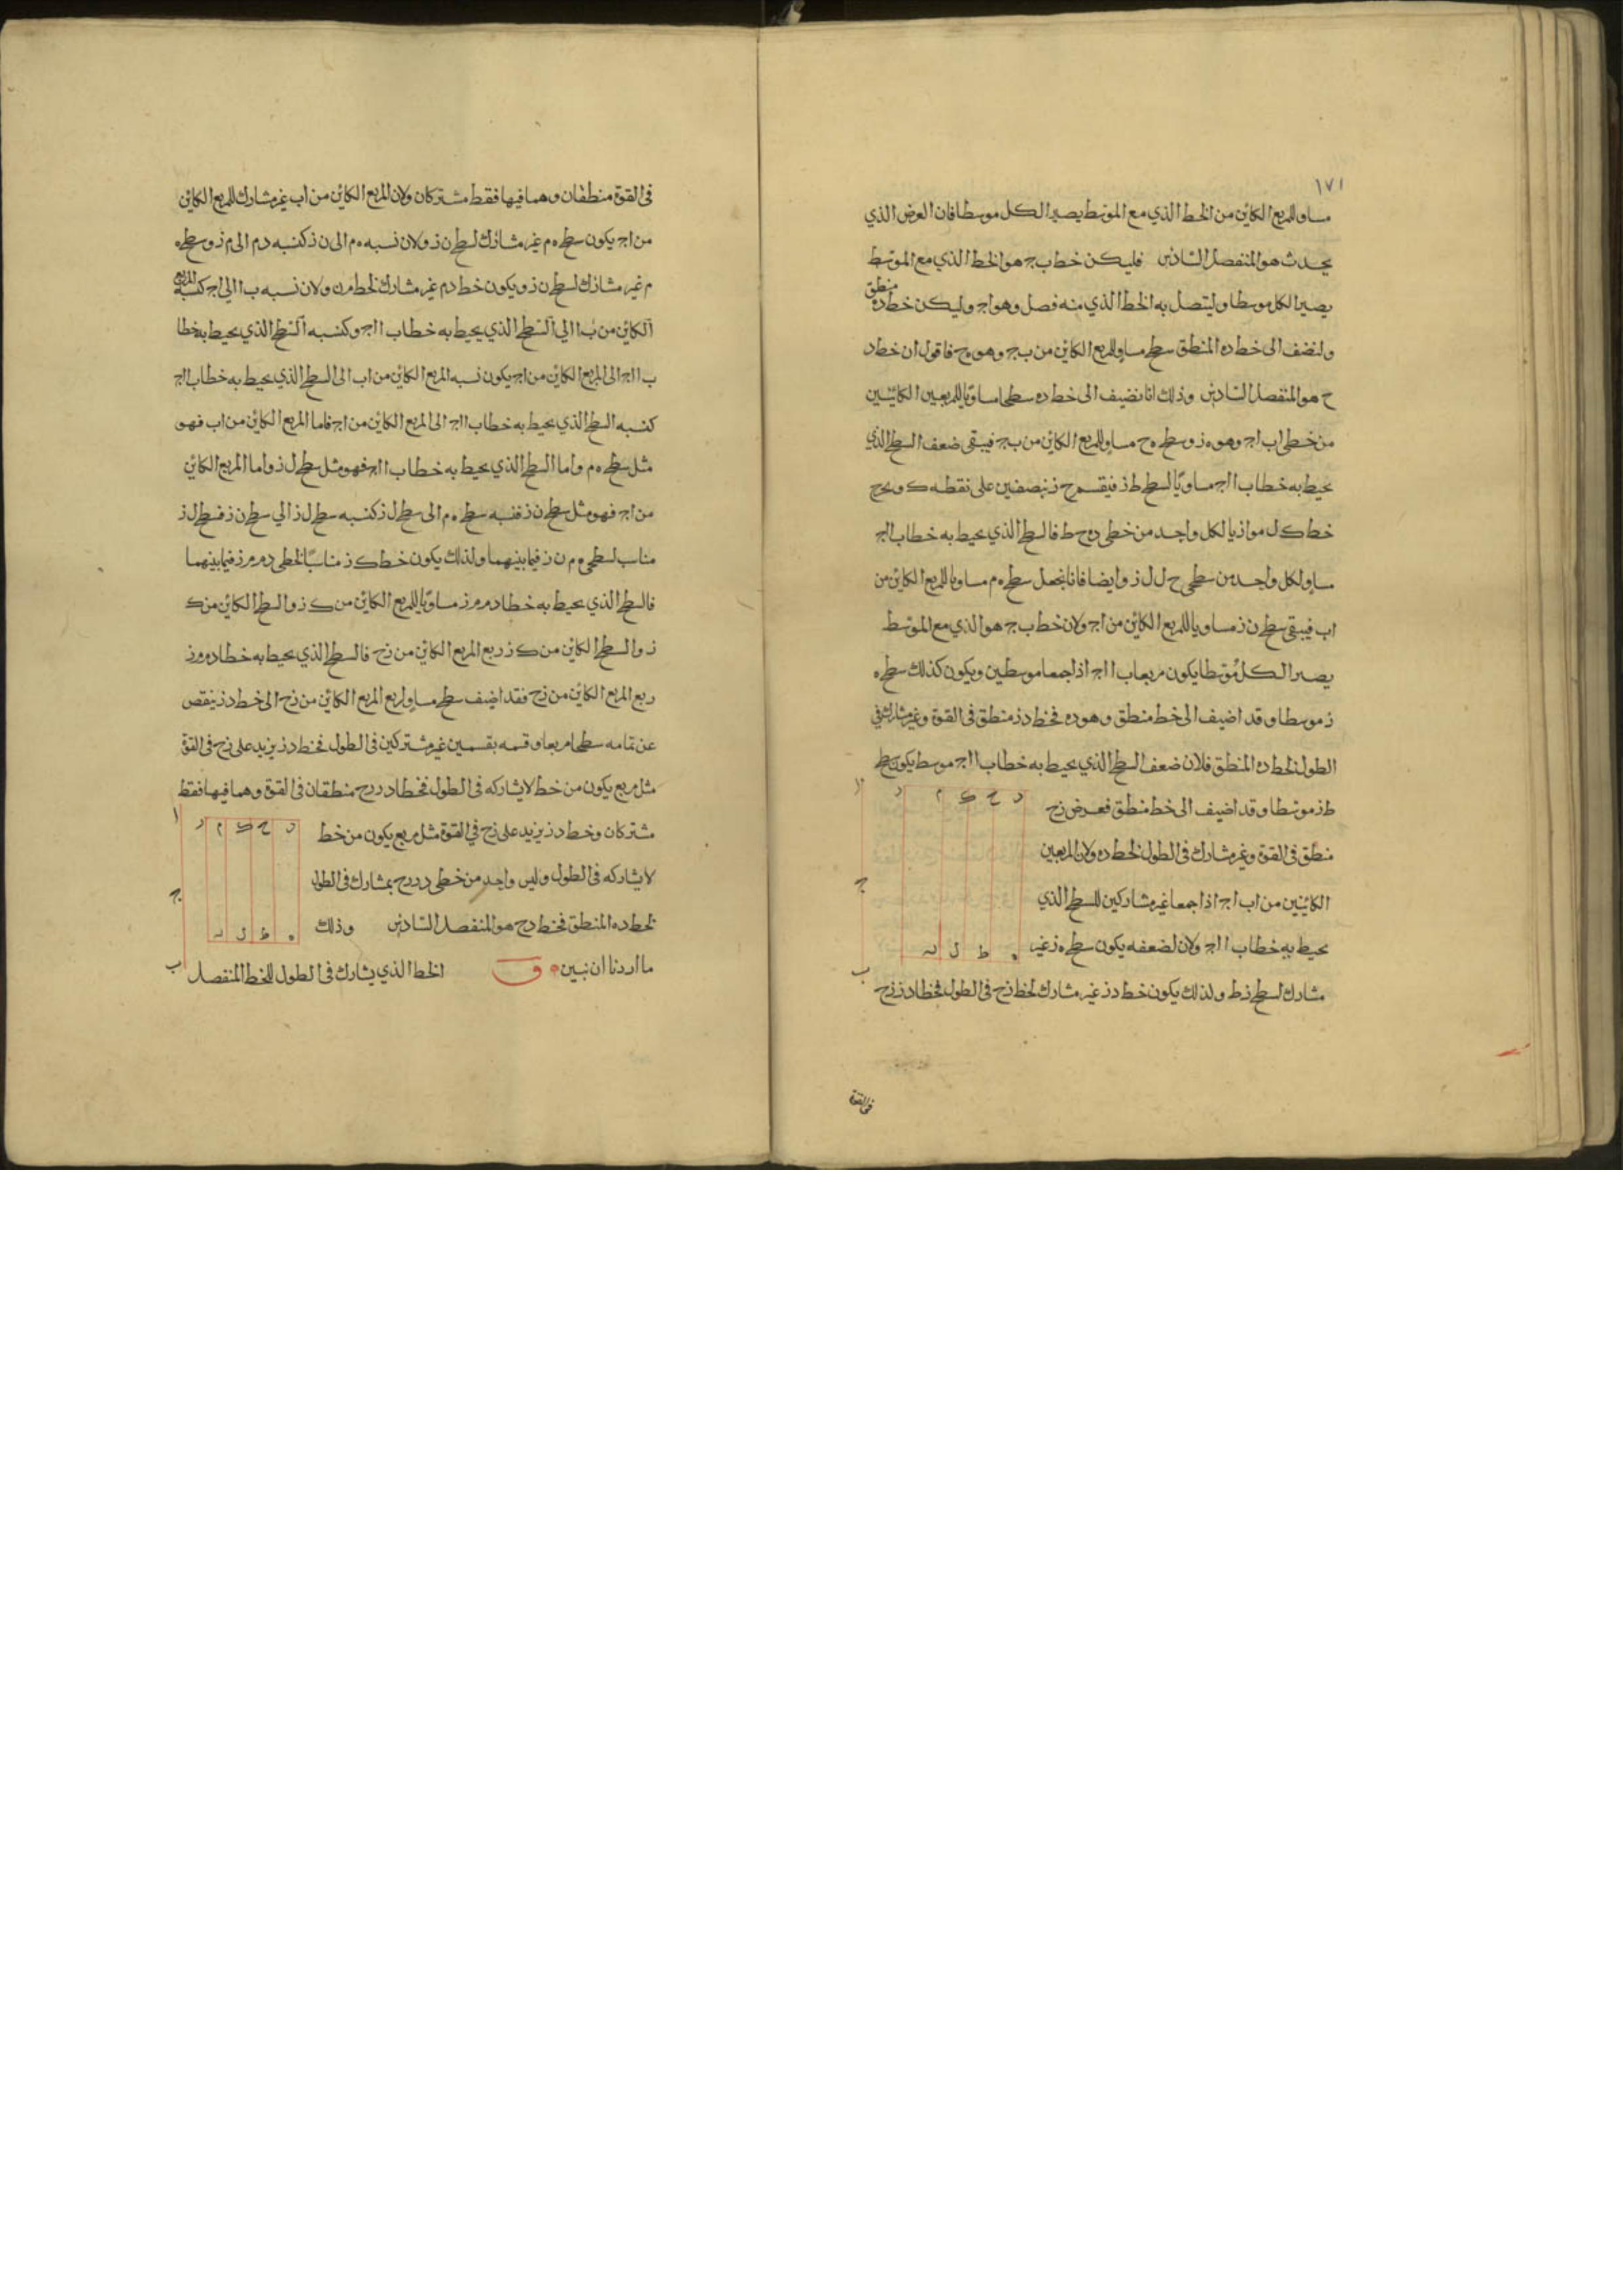 ١٧١
مساو للمربع الكائن من الخط الذي مع الموسط يصير الكل موسطا فان العرض الذي
يحدث هو المنفصل السادس فليكن خط ب ج هو الخط الذي مع الموسط
يصير الكل موسطا وليتصل به الخط الذي منه فصل وهو ا ج وليكن خط د ه منطق
ولنضف الى خط د ه المنطق سطح مساو للمربع الكائن من ب ج وهو ه ح فاقول ان خط د
ح هو المنفصل السادس وذلك انا نضيف الى خط د ه سطحا مساويا للمربعين الكائنين
من خطى ا ب ا ج وهو ه ز وسطح ه ح مساو للمربع الكائن من ب ج فيبقى ضعف السطح الذي
يحيط به خطا ب ا ا ج مساويا لسطح ط ز فيقسم ح ز بنصفين على نقطه ك ويخرج
خط ك ل موازيا لكل واحد من خطى د ه ح ط فالسطح الذي يحيط به خطا ب ا ا ج
مساو لكل واحد من سطحى ح ل ل ز وايضا فانا نجعل سطح ه م مساويا للمربع الكائن من
ا ب فيبقى سطح ن ز مساويا للمربع الكائن من ا ج ولان خط ب ج هو الذي مع الموسط
يصير الكل موسطا يكون مربعا ب ا ا ج اذا جمعا موسطين ويكون كذلك سطح ه
ز موسطا وقد اضيف الى خط منطق وهو د ه فخط د ز منطق في القوة وغير مشارك في
الطول لخط د ه المنطق فلان ضعف السطح الذي يحيط به خطا ب ا ا ج موسط يكون سطح
ط ز موسطا وقد اضيف الى خط منطق فعرض ز ح
منطق في القوة وغير مشارك في الطول لخط د ه ولان المربعين
الكائنين من ا ب ا ج اذا جمعا غير مشاركين للسطح الذي
يحيط به خطا ب ا ا ج ولان لضعفه يكون سطح ه ز غير
مشارك لسطح ز ط ولذلك يكون خط د ز غير مشارك لخط ز ح في الطول فخطا د ز ز ح
د ح ك م ر
ا
ج
ب
ه ط ل ن
في القوة
في القوة منطقان وهما فيها فقط مشتركان ولان المربع الكائن من ا ب غير مشارك للمربع الكائن
من ا ج يكون سطح ه م غير مشارك لسطح ن ز ولان نسبه ه م الى ن ز كنسبه د م الى م ز وسطح ه
م غير مشارك لسطح ن ز ويكون خط د م غير مشارك لخط م ز ولان نسبه ب ا الى ا ج كنسبه المربع
الكائن من ب ا الى السطح الذي يحيط به خطا ب ا ا ج وكنسبه السطح الذي يحيط به خطا
ب ا ا ج الى المربع الكائن من ا ج يكون نسبه المربع الكائن من ا ب الى السطح الذي يحيط به خطا ب ا ا ج
كنسبه السطح الذي يحيط به خطا ب ا ا ج الى المربع الكائن من ا ج فاما المربع الكائن من ا ب فهو
مثل سطح ه م واما السطح الذي يحيط به خطا ب ا ا ج فهو مثل سطح ل ز واما المربع الكائن
من ا ج فهو مثل سطح ن ز فنسبه سطح ه م الى سطح ل ز كنسبه سطح ل ز الى سطح ن ز فسطح ل ز
مناسب لسطحى ه م ن ز فيما بينهما ولذلك يكون خط ك ز مناسبا لخطى د م م ز فيما بينهما
فالسطح الذي يحيط به خطا د م م ز مساويا للمربع الكائن من ك ز والسطح الكائن من ك
ز والسطح الكائن من ك ز ربع المربع الكائن من ز ح فالسطح الذي يحيط به خطا د م م ز
ربع المربع الكائن من ز ح فقد اضيف سطح مساو لربع المربع الكائن من ز ح الى خط د ز ينقص
عن تمامه سطحا مربعا وقسمه بقسمين غير مشتركين في الطول فخط د ز يزيد على ز ح في القوة
مثل مربع يكون من خط لا يشاركه في الطول فخطا د ز ز ح منطقان في القوة وهما فيها فقط
مشتركان وخط د ز يزيد على ز ح في القوة مثل مربع يكون من خط
لا يشاركه في الطول وليس واحد من خطى د ز ز ح بمشارك في الطول
لخط د ه المنطق فخط د ح هو المنفصل السادس وذلك
ما اردنا ان نبين ق الخط الذي يشارك في الطول للخط المنفصل
د ح ك م ر
ا
ج
ب
ه ط ل ن